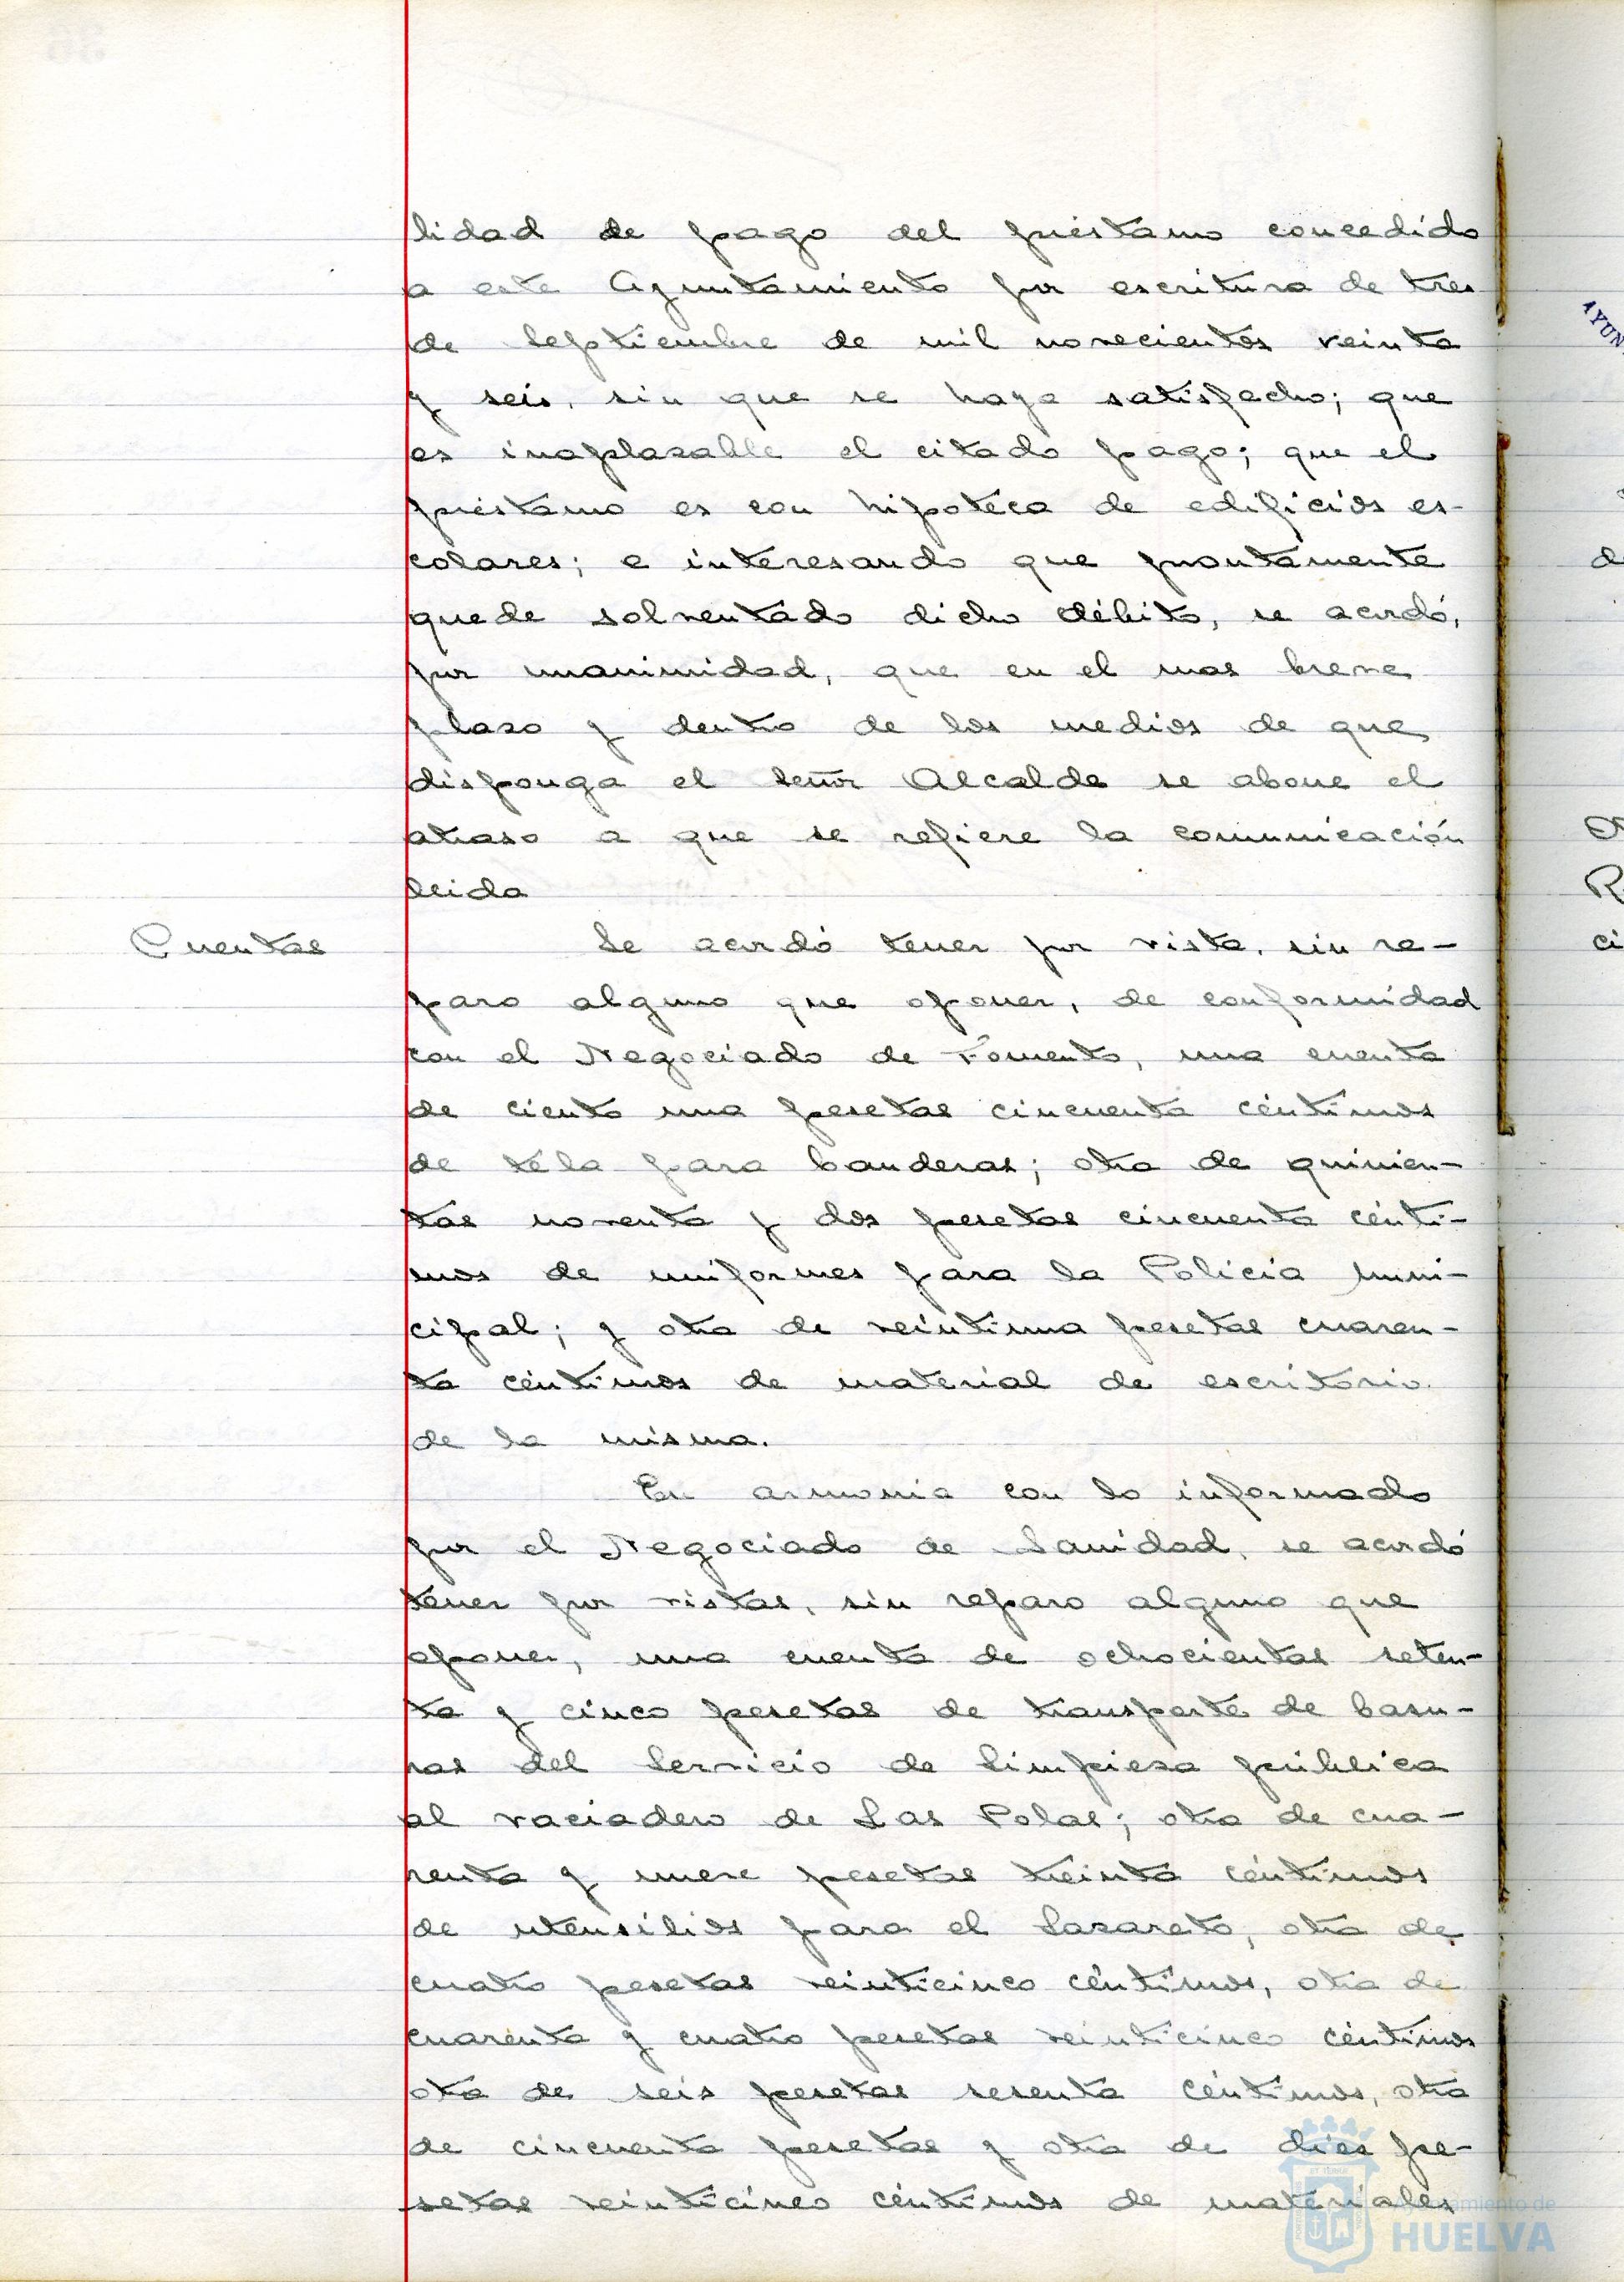 lidad de pago del préstamo concedido
a este Ayuntamiento por escritura de tres
de Septiembre de mil novecientos veinte
y seis, sin que se haya satisfecho; que
es inaplazable el citado pago; que el
préstamo es con hipoteca de edificios es-
colares; e interesando que prontamente
quede solventado dicho débito, se acordó,
por unanimidad, que en el mas breve
plazo y dentro de los medios de que
disponga el señor Alcalde se abone el
atraso a que se refiere la comunicación
leida
Cuentas
Se acordó tener por vista, sin re-
paro alguno que oponer, de conformidad
con el Negociado de Fomento, una cuenta
de ciento una pesetas cincuenta céntimos
de tela para banderas; otra de quinien-
tas noventa y dos pesetas cincuenta cénti-
mos de uniformes para la Policia Muni-
cipal; y otra de veintiuna pesetas cuaren-
ta céntimos de material de escritorio
de la misma.
En armonia con lo informado
por el Negociado de Sanidad, se acordó
tener por vistas, sin reparo alguno que
oponer, una cuenta de ochocientas seten-
ta y cinco pesetas de transporte de basu-
ras del Servicio de Limpieza pública
al vaciadero de Las Polas; otra de cua-
renta y nueve pesetas treinta céntimos
de utensilios para el Lazareto, otra de
cuatro pesetas veinticinco céntimos, otra de
cuarenta y cuatro pesetas veinticinco céntimos
otra de seis pesetas sesenta céntimos, otra
de cincuenta pesetas y otra de diez pe-
setas veinticinco céntimos de materiales
Ayuntamiento de
HUELVA